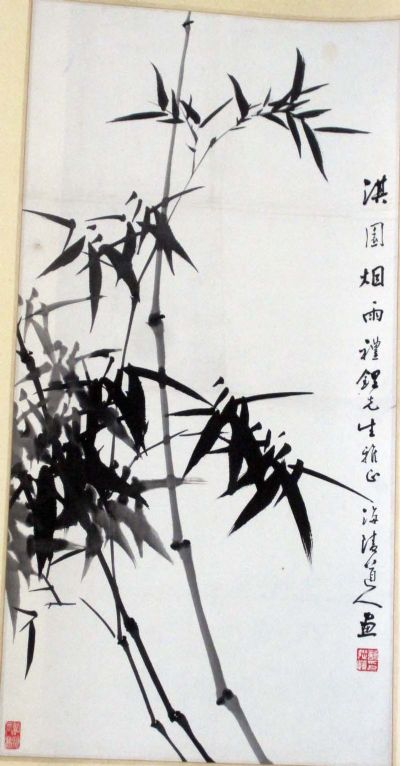 淇園烟雨禮鋰先生雅正海陵道人画